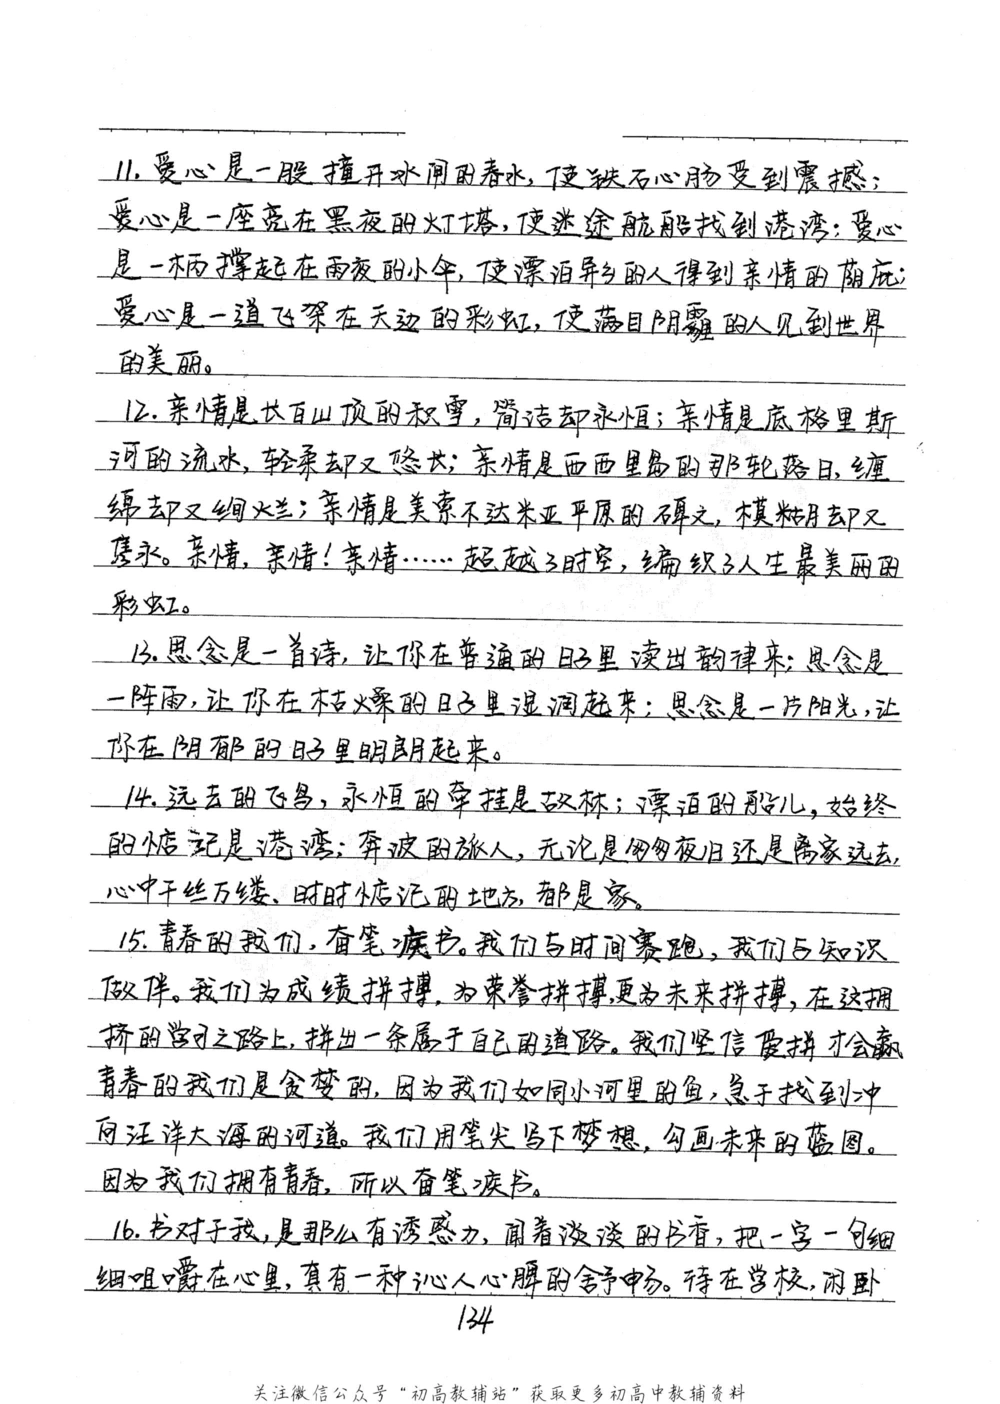 11. 爱心是一股撞开冰闸的春水，使铁石心肠受到震撼；
爱心是一座亮在黑夜的灯塔，使迷途航船找到港湾；爱心
是一柄撑起在雨夜的小伞，使漂泊异乡的人得到亲情的荫庇；
爱心是一道飞架在天边的彩虹，使满目阴霾的人见到世界
的美丽。
12. 亲情是长白山顶的积雪，简洁却永恒；亲情是底格里斯
河的流水，轻柔却又悠长；亲情是西西里岛的那轮落日，缠
绵却又绚烂；亲情是美索不达米亚平原的碑文，模糊却又
隽永。亲情，亲情！亲情……超越了时空，编织了人生最美丽的
彩虹。
13. 思念是一首诗，让你在普通的日子里读出韵律来；思念是
一阵雨，让你在枯燥的日子里湿润起来；思念是一片阳光，让
你在阴郁的日子里明朗起来。
14. 远去的飞鸟，永恒的牵挂是故林；漂泊的船儿，始终
的惦记是港湾；奔波的旅人，无论是匆匆夜归还是离家远去，
心中千丝万缕、时时惦记的地方，都是家。
15. 青春的我们，奋笔疾书。我们与时间赛跑，我们与知识
做伴。我们为成绩拼搏，为荣誉拼搏，更为未来拼搏，在这拥
挤的学习之路上，拼出一条属于自己的道路。我们坚信爱拼才会赢
青春的我们是贪梦的，因为我们如同小河里的鱼，急于找到冲
向汪洋大海的河道。我们用笔尖写下梦想，勾画未来的蓝图。
因为我们拥有青春，所以奋笔疾书。
16. 书对于我，是那么有诱惑力，闻着淡淡的书香，把一字一句细
细咀嚼在心里，真有一种沁人心脾的舒畅。待在学校，闲卧
134
关注微信公众号“初高教辅站”获取更多初高中教辅资料